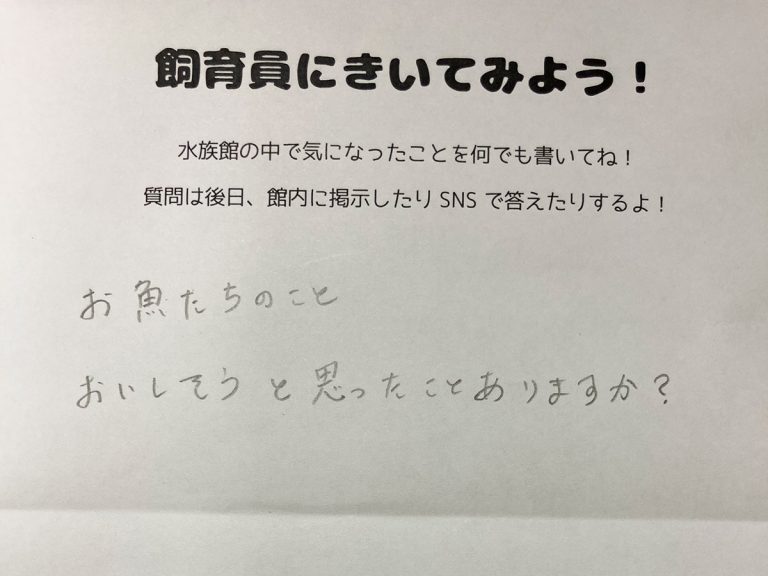 飼育員にきいてみよう！
水族館の中で気になったことを何でも書いてね！
質問は後日、館内に掲示したりSNSで答えたりするよ！
お魚たちのこと
おいしそうと思ったことありますか？